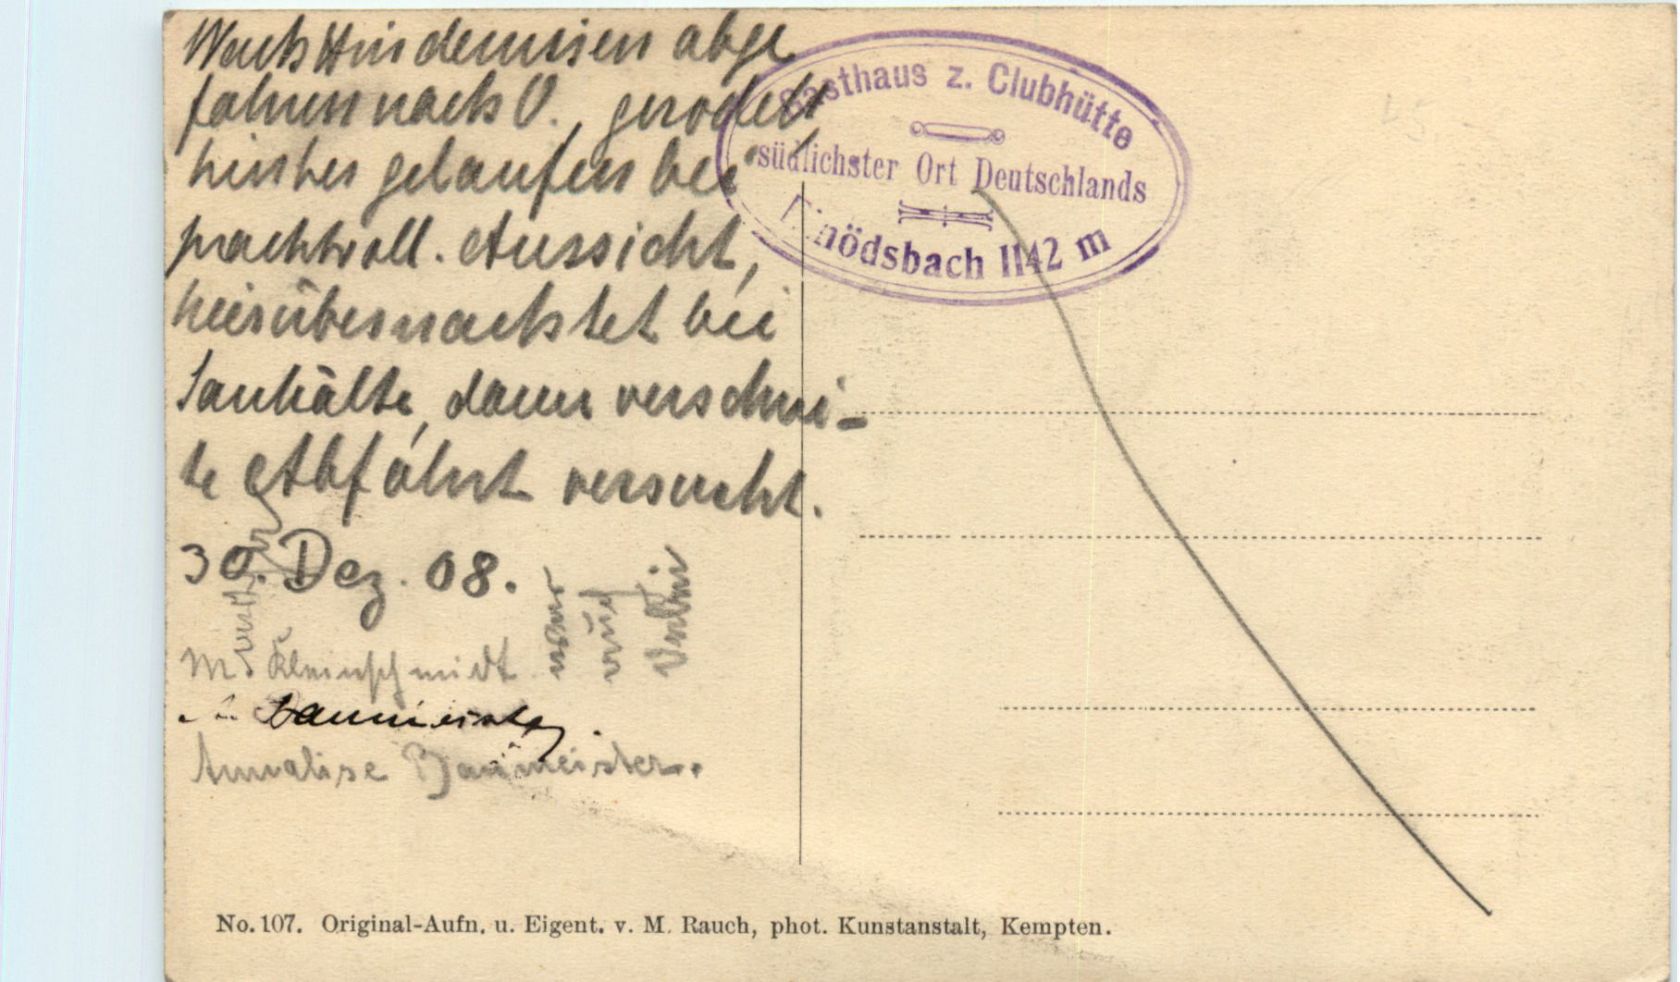 Nach Hindernissen abge
fahren nach O., gerodelt
hierher gelaufen bei
prachtvoll. Aussicht,
hier übernachtet bei
Sauhälte, dann verschni-
te Abfahrt versucht.
30. Dez. 08.
M. Kleinschmidt
Baumeister
Annalise Baumeister.
Gasthaus z. Clubhütte
südlichster Ort Deutschlands
Einödsbach 1142 m
No. 107. Original-Aufn. u. Eigent. v. M. Rauch, phot. Kunstanstalt, Kempten.